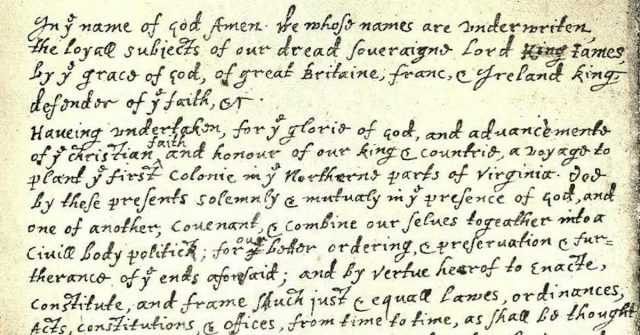 In yͤ name of god Amen. We whose names are underwriten,
the loyall subjects of our dread soveraigne Lord King James,
by yͤ grace of god, of great Britaine, franc, & Ireland king,
defender of yͤ faith, &c.
Haveing undertaken, for yͤ glorie of god, and advancemente
of yͤ christian faith and honour of our king & countrie, a voyage to
plant yͤ first colonie in yͤ Northerne parts of Virginia. Doe
by these presents solemnly & mutualy in yͤ presence of god, and
one of another; covenant, & combine our selves togeather into a
Civill body politick; for our better ordering, & preservation & fur-
therance of yͤ ends aforesaid; and by vertue hearof to enacte,
constitute, and frame shuch just & equall lawes, ordinances,
Acts, constitutions, & offices, from time to time, as shall be thought